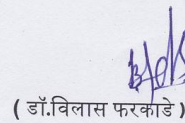 ( डॉ.विलास फरकाडे )